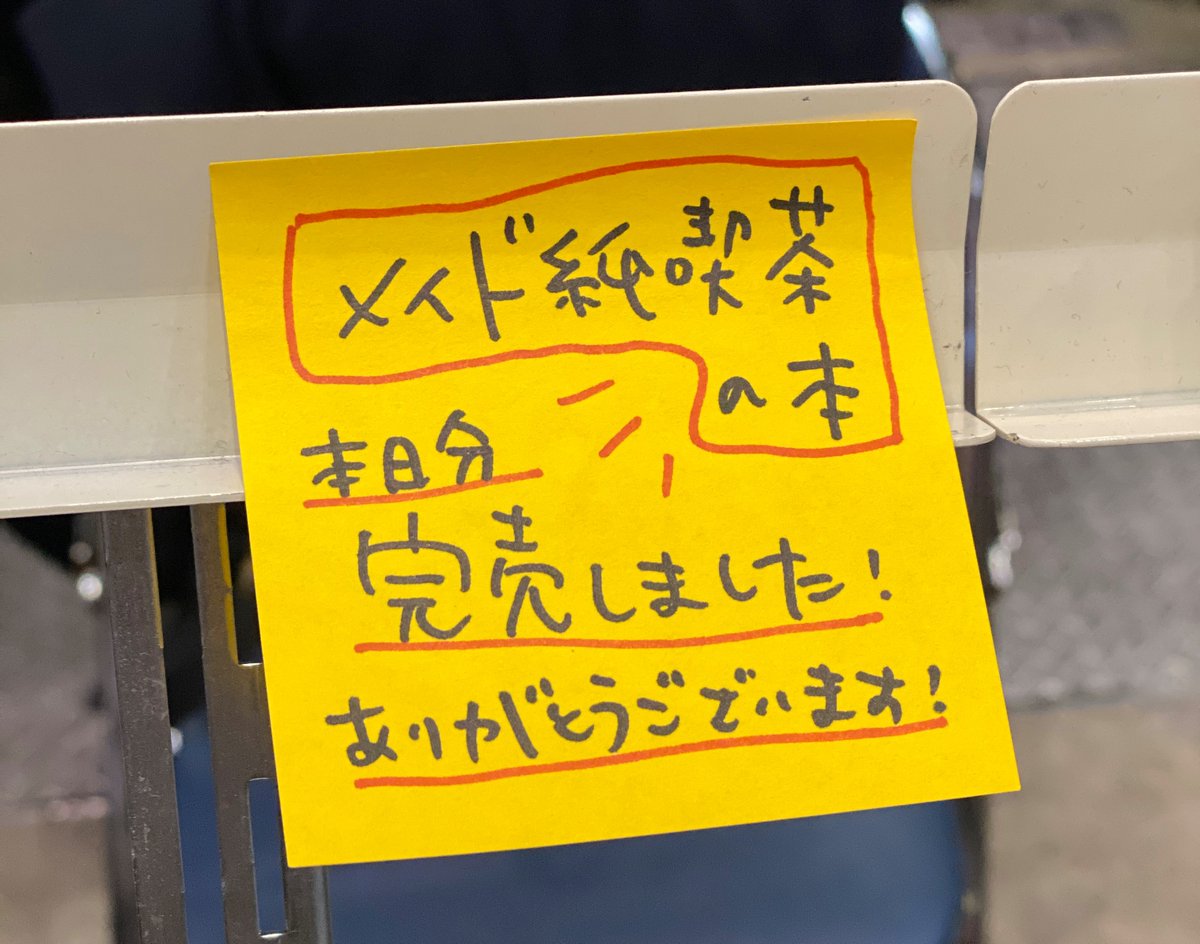 メイド純喫茶
の本
本日分
完売しました!
ありがとうございます!